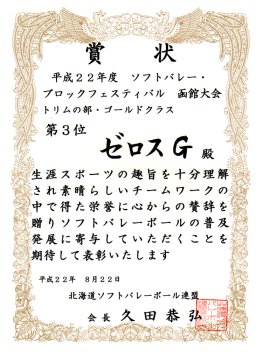 賞状
平成２２年度　ソフトバレー・
ブロックフェスティバル　函館大会
トリムの部・ゴールドクラス
第３位
ゼロスＧ 殿
生涯スポーツの趣旨を十分理解
され素晴らしいチームワークの
中で得た栄誉に心からの賛辞を
贈りソフトバレーボールの普及
発展に寄与していただくことを
期待して表彰いたします
平成２２年　８月２２日
北海道ソフトバレーボール連盟
会長　久田恭弘